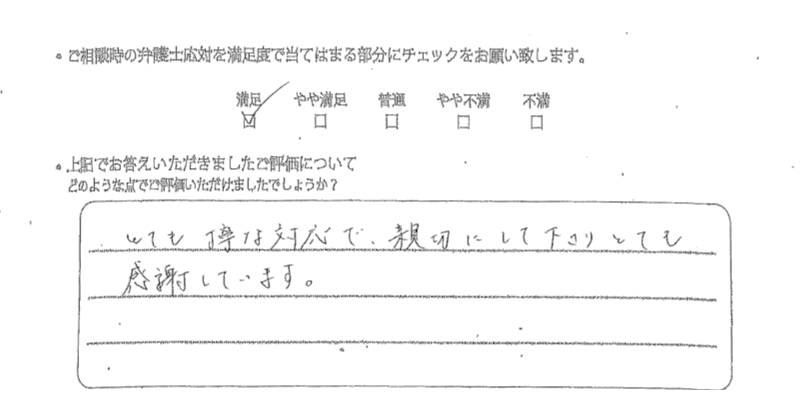 ・ご相談時の弁護士応対を満足度で当てはまる部分にチェックをお願い致します。
満足 やや満足 普通 やや不満 不満
☑ □ □ □ □
・上記でお答えいただきましたご評価について
どのような点でご評価いただけましたでしょうか？
とても丁寧な対応で、親切にして下さりとても
感謝しています。